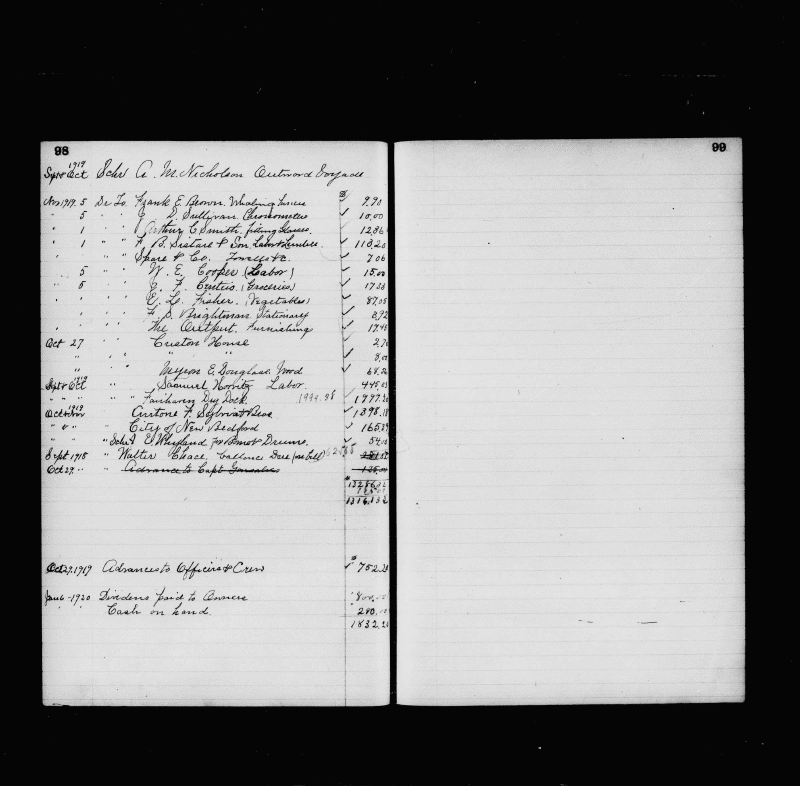 98
1919
Sept & Oct Schr A. M. Nicholson Outward Voyage
Nov 1919. 5 Dr To. Frank E. Brown. Whaling 9.90
" 5 " " J. D. Sullivan Chronometers 10.00
" 1 " " Arthur C Smith. Glasses. 12.86
" 1 " " F. B. Sistare & Son. Labor & Lumber. 118.20
" " " Spare & Co. Towels &c. 7.06
5 " " W. E. Cooper (Labor) 15.00
" 5 " " J. F. (Groceries) 17.38
" " " E. L. Fisher. (Vegetables) 87.05
" " " F. S. Brightman Stationary 8.92
" " " The Outfit. Furnishing 17.45
Oct 27 " " Custom House 2.70
" " " " 8.00
" " Myron E. Douglass. Wood 68.26
1919
Sept & Oct " " Samuel Horvitz Labor.
" " " " " Fairhaven Dry Dock. 1777.20
1919
Oct & Nov " Antone F. Sylvia & Bros. 1398.18
" " " " City of New Bedford 165.29
" " " Schr A E. Whyland For Bomb & Drums. 54.00
Sept 1918 " Walter Chace. Ballence Due (on bill)
Oct 29. " " Advance to Capt Gonsalves 125.00
125.00
13161.32
Oct 29. 1919 Advances to Officers & Crew 752.20
Jan 6-1920 Dividens paid to Owners 800.00
Cash on hand. 280.00
1832.20
99